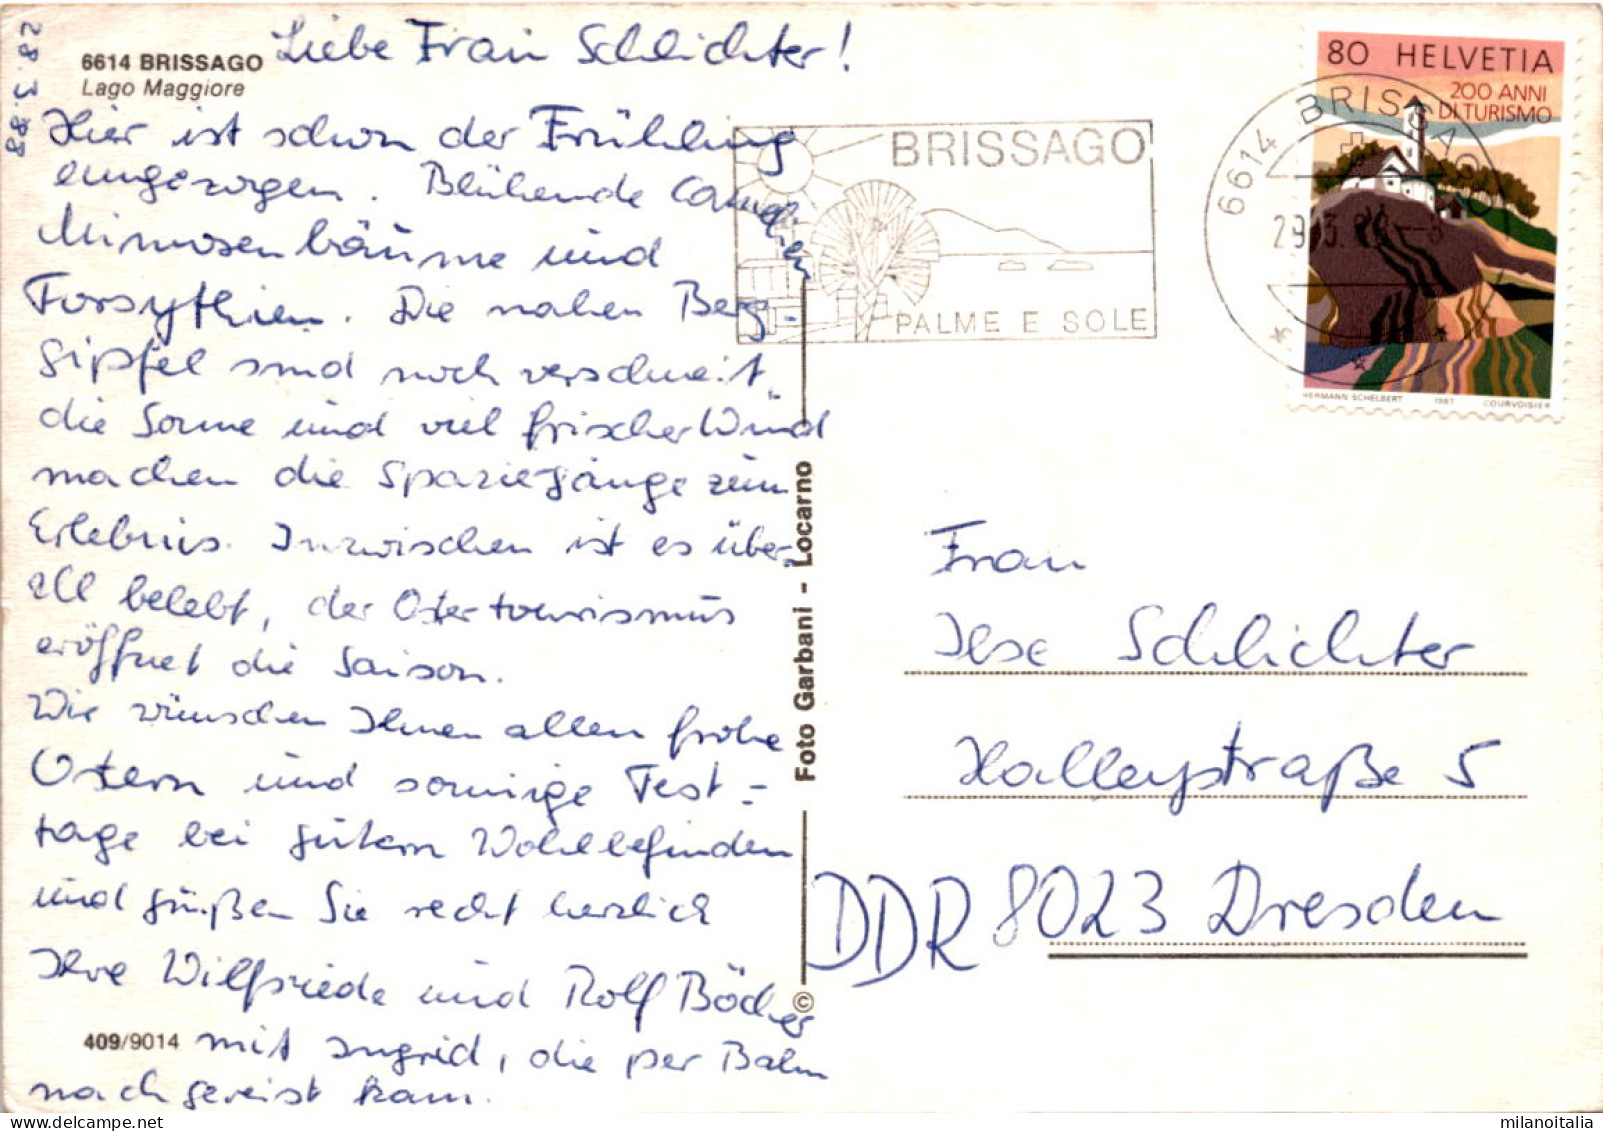 28.3.88
6614 BRISSAGO
Lago Maggiore
Liebe Frau Schlichter!
Hier ist schon der Frühling
eingezogen. Blühende Camelien
Mimosenbäume und
Forsythien. Die nahen Berg-
gipfel sind noch verschneit,
die Sonne und viel frischer Wind
machen die Spaziergänge zum
Erlebnis. Inzwischen ist es über-
all belebt, der Ostertourismus
eröffnet die Saison.
Wir wünschen Ihnen allen frohe
Ostern und sonnige Fest-
tage bei gutem Wohlbefinden
und grüßen Sie recht herzlich
Ihre Wilfriede und Rolf Böcher
mit Ingrid, die per Bahn
nachgereist kam.
409/9014
Foto Garbani - Locarno
©
BRISSAGO
PALME E SOLE
6614 BRISSAGO
29.3.88-8
80 HELVETIA
200 ANNI
DI TURISMO
HERMANN SCHELBERT 1987 COURVOISIER
Frau
Ilse Schlichter
Halleystraße 5
DDR 8023 Dresden
milanoitalia